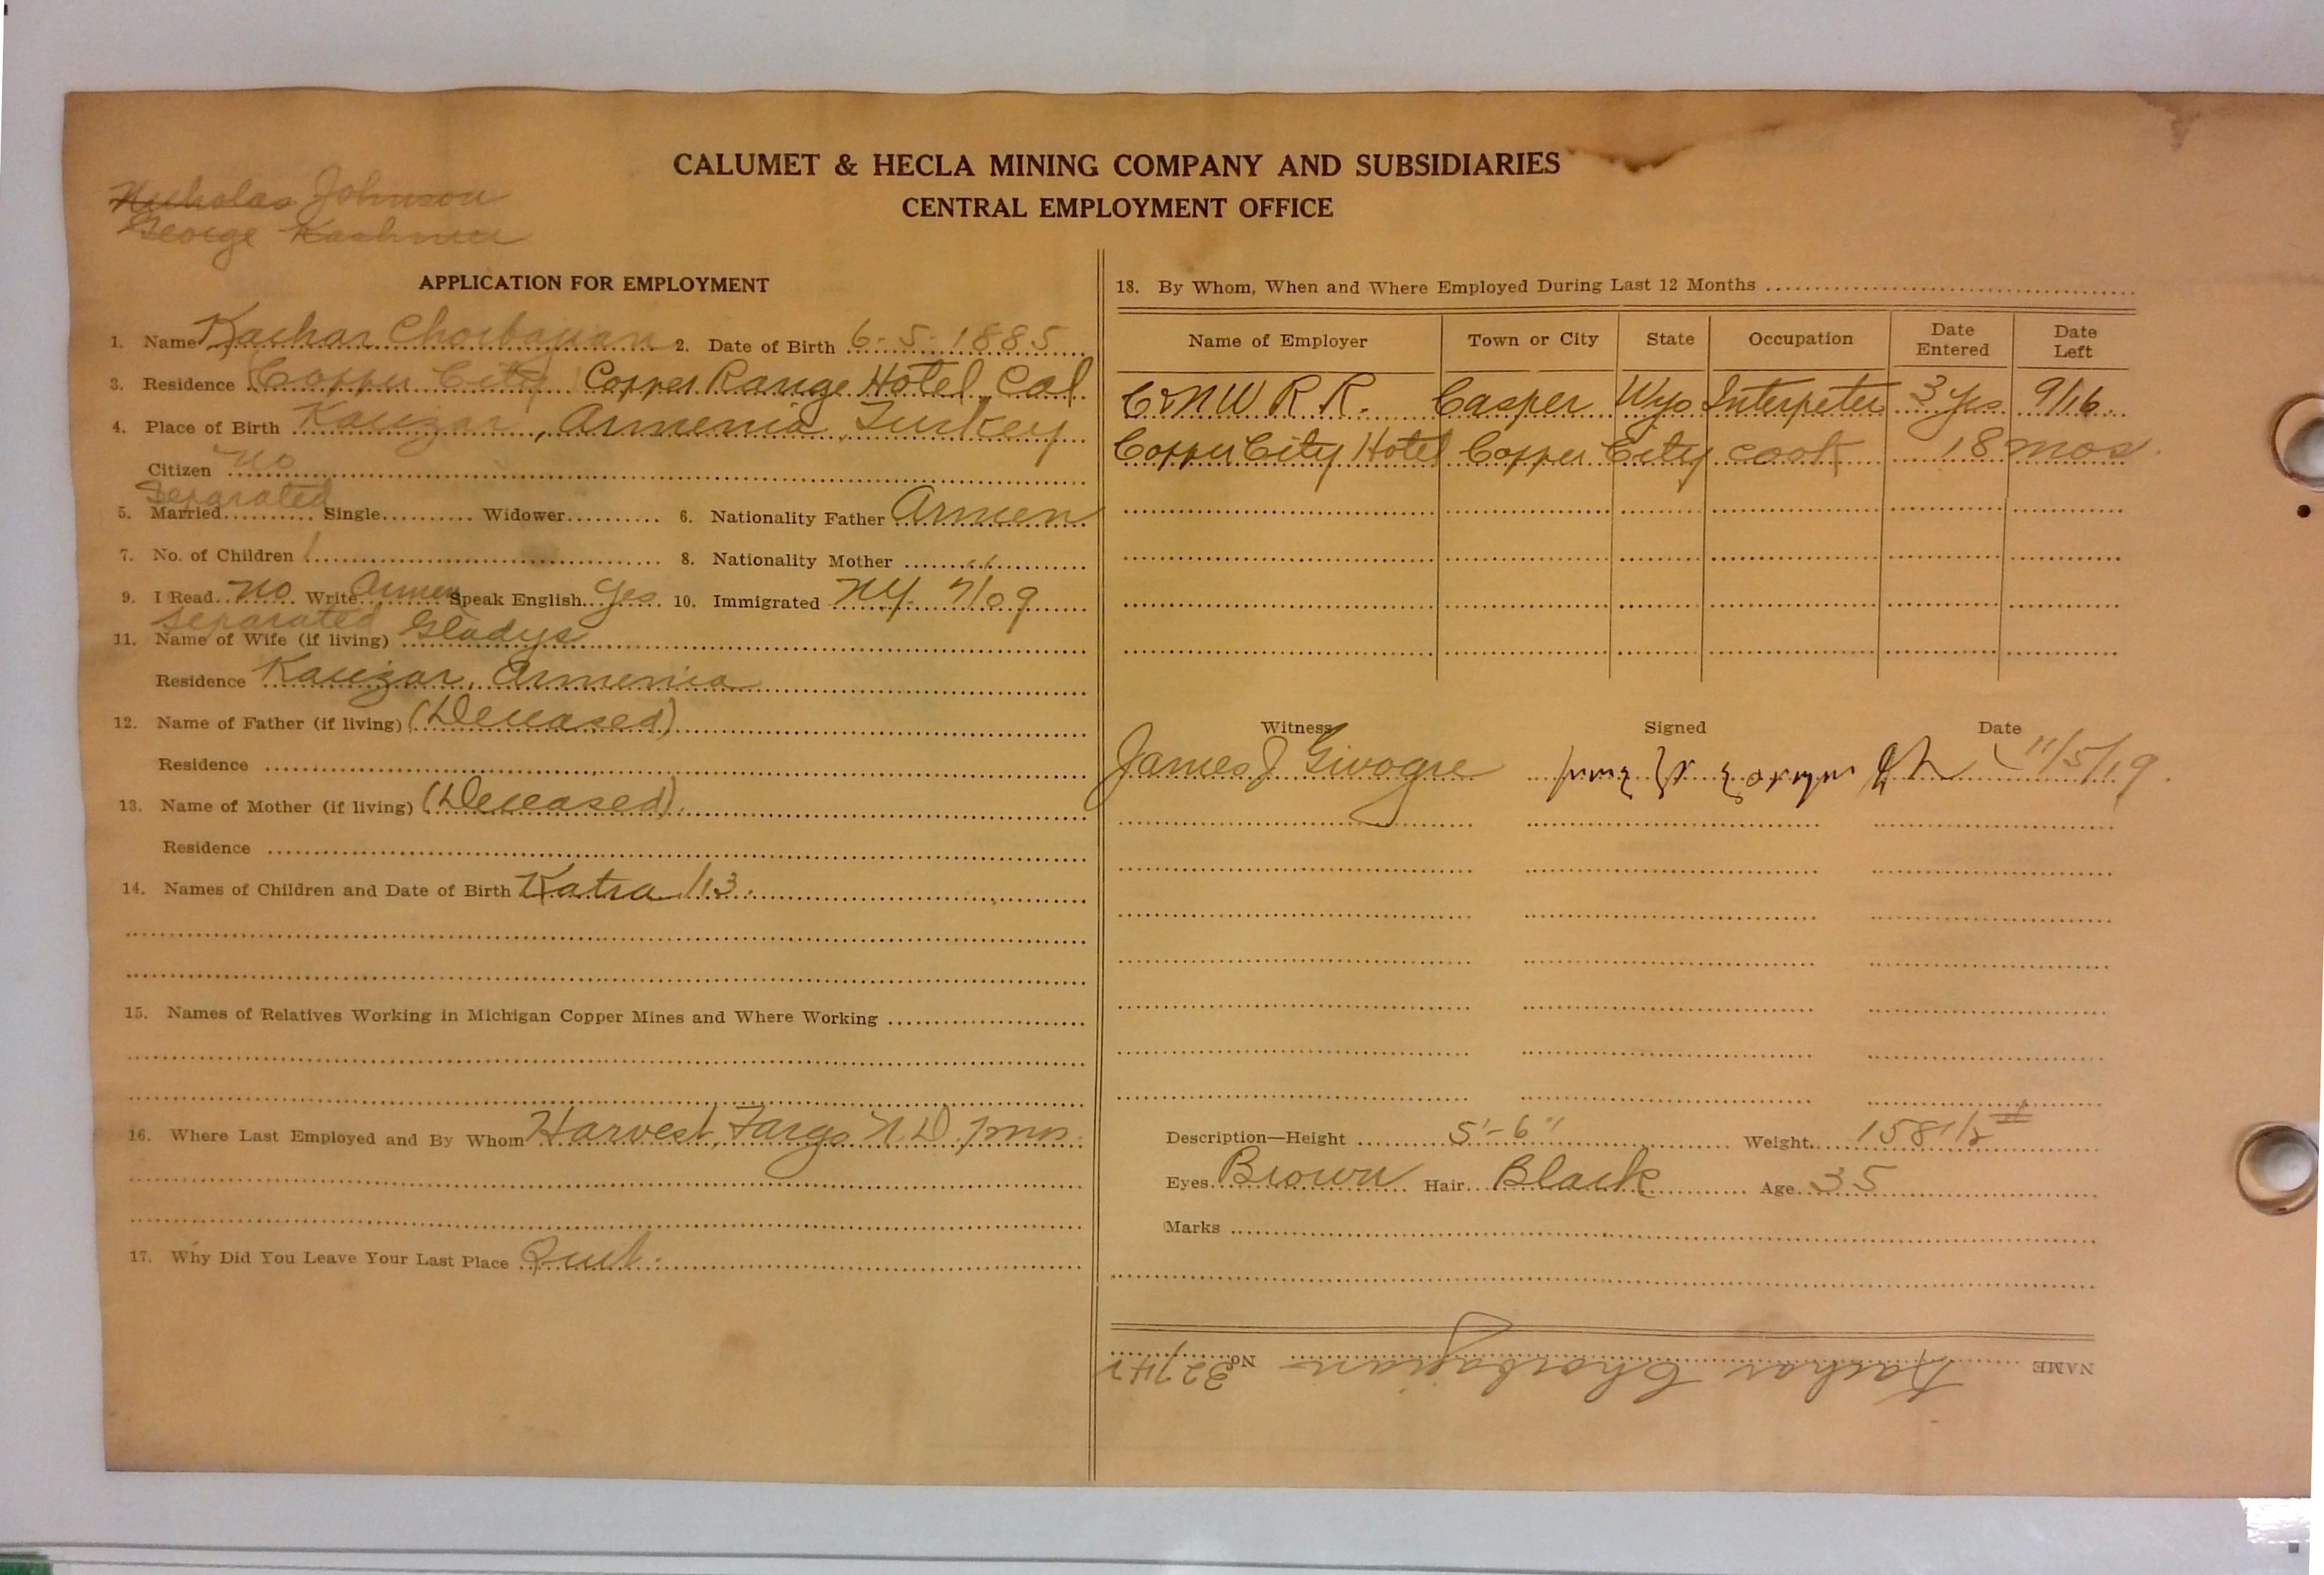 CALUMET & HECLA MINING COMPANY AND SUBSIDIARIES
CENTRAL EMPLOYMENT OFFICE
Nicholas Johnson
George Kashmer
APPLICATION FOR EMPLOYMENT
1. Name Kachar Chorbajian 2. Date of Birth 6-5-1885
3. Residence (Copper City) Copper Range Hotel, Cal
4. Place of Birth Kauzar, Armenia, Turkey
Citizen no
Separated
5. Married Single Widower 6. Nationality Father Armen
7. No. of Children 1 8. Nationality Mother "
9. I Read no Write Armen Speak English yes 10. Immigrated NY 7/09
Separated
11. Name of Wife (if living) Gladys
Residence Kauzar, Armenia
12. Name of Father (if living) (Deceased)
Residence
13. Name of Mother (if living) (Deceased)
Residence
14. Names of Children and Date of Birth Katra /13.
15. Names of Relatives Working in Michigan Copper Mines and Where Working
16. Where Last Employed and By Whom Harvest, Fargo N.D.
17. Why Did You Leave Your Last Place Quit.
18. By Whom, When and Where Employed During Last 12 Months
Name of Employer Town or City State Occupation Date Entered Date Left
C & N W R R. Casper Wyo Interpeter 3 yrs 9/16
Copper City Hotel Copper City cook 18 mos.
Witness Signed Date
James J 11/5/19.
Description—Height 5'-6" Weight 158 1/2 #
Eyes Brown Hair Black Age 35
Marks
NAME Kachar Chorbajian No. 32742